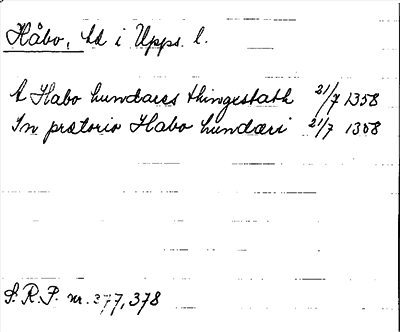 Håbo, hd i Upps. l.
A Habo hundares thingestath 21/7 1358
In pretorio Habo hundæri 21/7 1358
S.R.P. nr. 377, 378